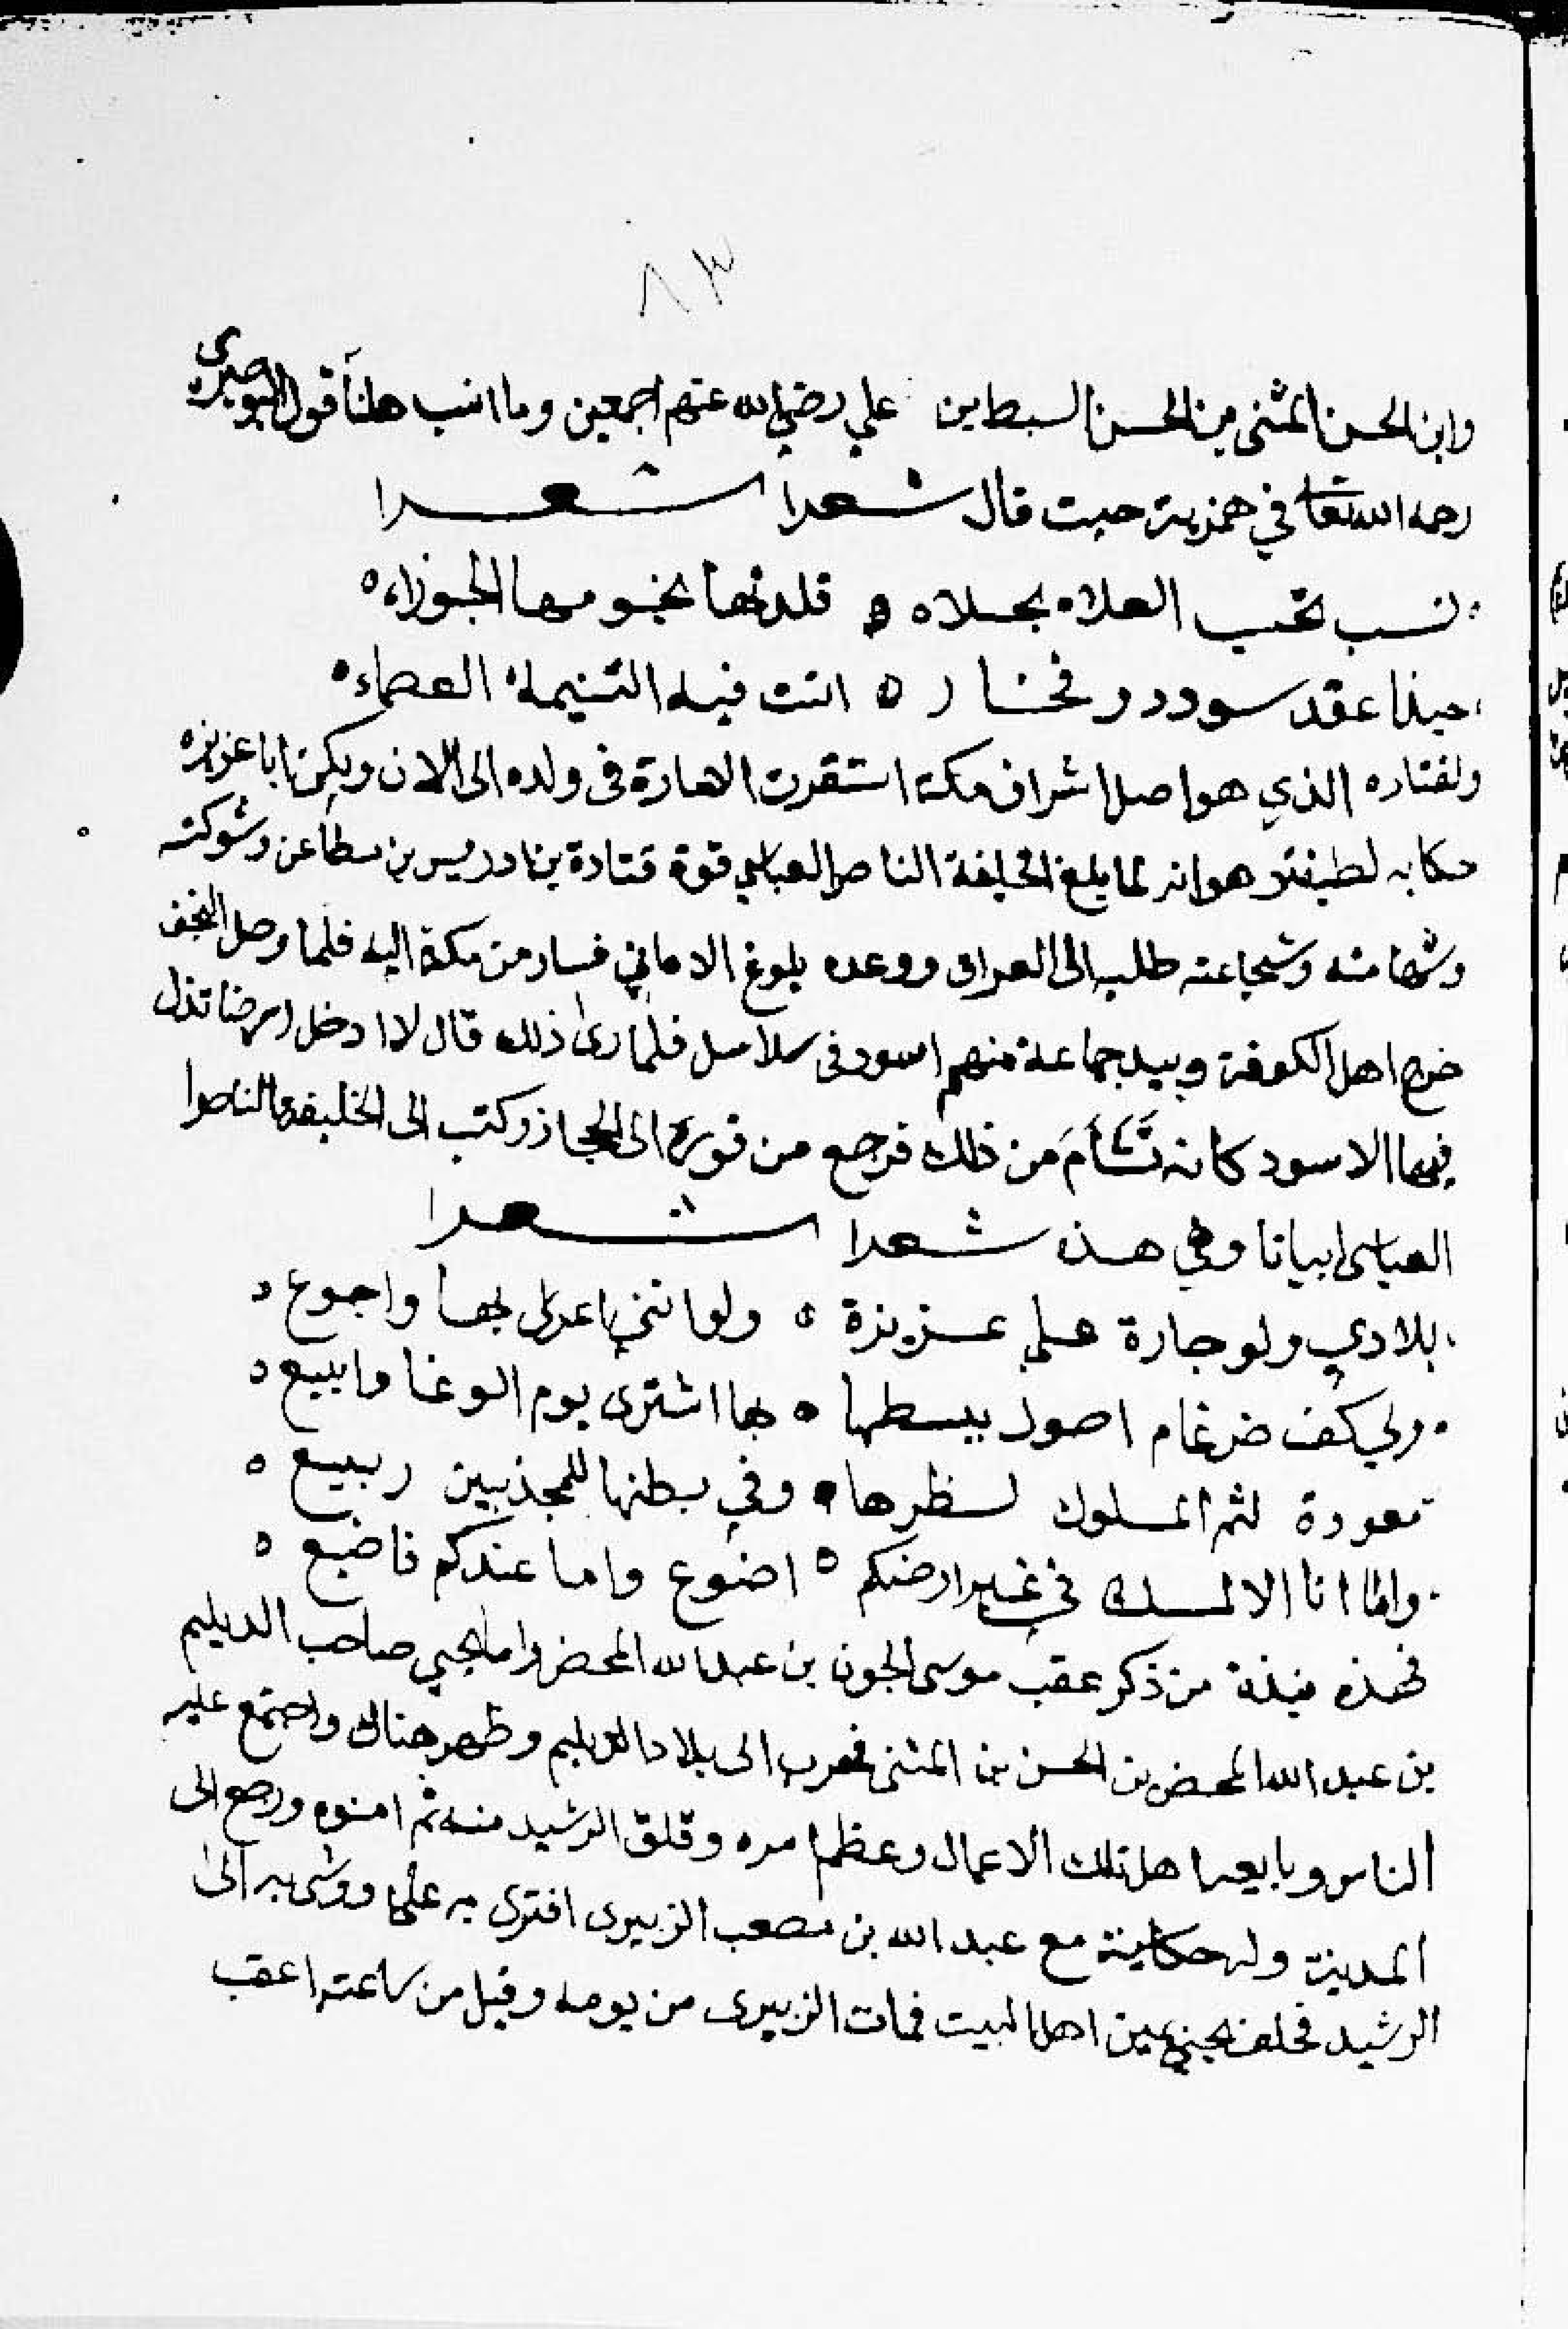 ٨٣
وابن الحسن المثنى بن الحسن السبط بن علي رضي الله عنهم اجمعين وما انسب هلنا قول البوصيرى
رحمه الله تعالى في همزيته حيث قال شعرا شعرا
نسب تحسب العلاء بحلاه قلدتها نجومها الجوزاء
حبذا عقد سوودد وفخار انت فيه اليتيمة العصماء
ولقتاده الذي هو اصل اشراف مكة استقرت الامارة فى ولده الى الان ويكنى ابا عزيزه
حكايه لطيفة هو انه لما بلغ الخليفة الناصر العباسي قوة قتادة بن ادريس بن مطاعن وشوكته
وشهامته وشجاعته طلبه الى العراق ووعده بلوغ الاماني فسار من مكة اليه فلما وصل النجف
خرج اهل الكوفة وبيد جماعة منهم اسود فى سلاسل فلما راى ذلك قال لا ادخل ارضا تذل
فيها الاسود كانه تشأم من ذلك فرجع من فوره الى الحجاز وكتب الى الخليفة الناصرا
العباسى ابياتا وهي هذه شعرا شعرا
بلادي ولو جارة علي عزيزة ولو انني اعرى بها واجوع
ولي كف ضرغام اصول ببسطها بها اشترى يوم الوغا وابيع
معودة لثم الملوك لظهرها وفي بطنها للمجذبين ربيع
وما انا الا المسك في غير ارضكم اضوع واما عندكم فاضيع
فهذه نبذة من ذكر عقب موسى الجون بن عبد الله المحض واما يحيي صاحب الديليم
بن عبد الله المحض بن الحسن بن المثنى فهرب الى بلاد الديليم وظهر هناك واجتمع عليه
الناس وبايعه اهل تلك الاعمال وعظم امره وقلق الرشيد منه ثم امنوه ورجع الى
المدينة وله حكاية مع عبد الله بن مصعب الزبيرى افترى به على ووشى به الى
الرشيد فحلف يمين اهل البيت فمات الزبيرى من يومه وقيل من ساعته اعقب